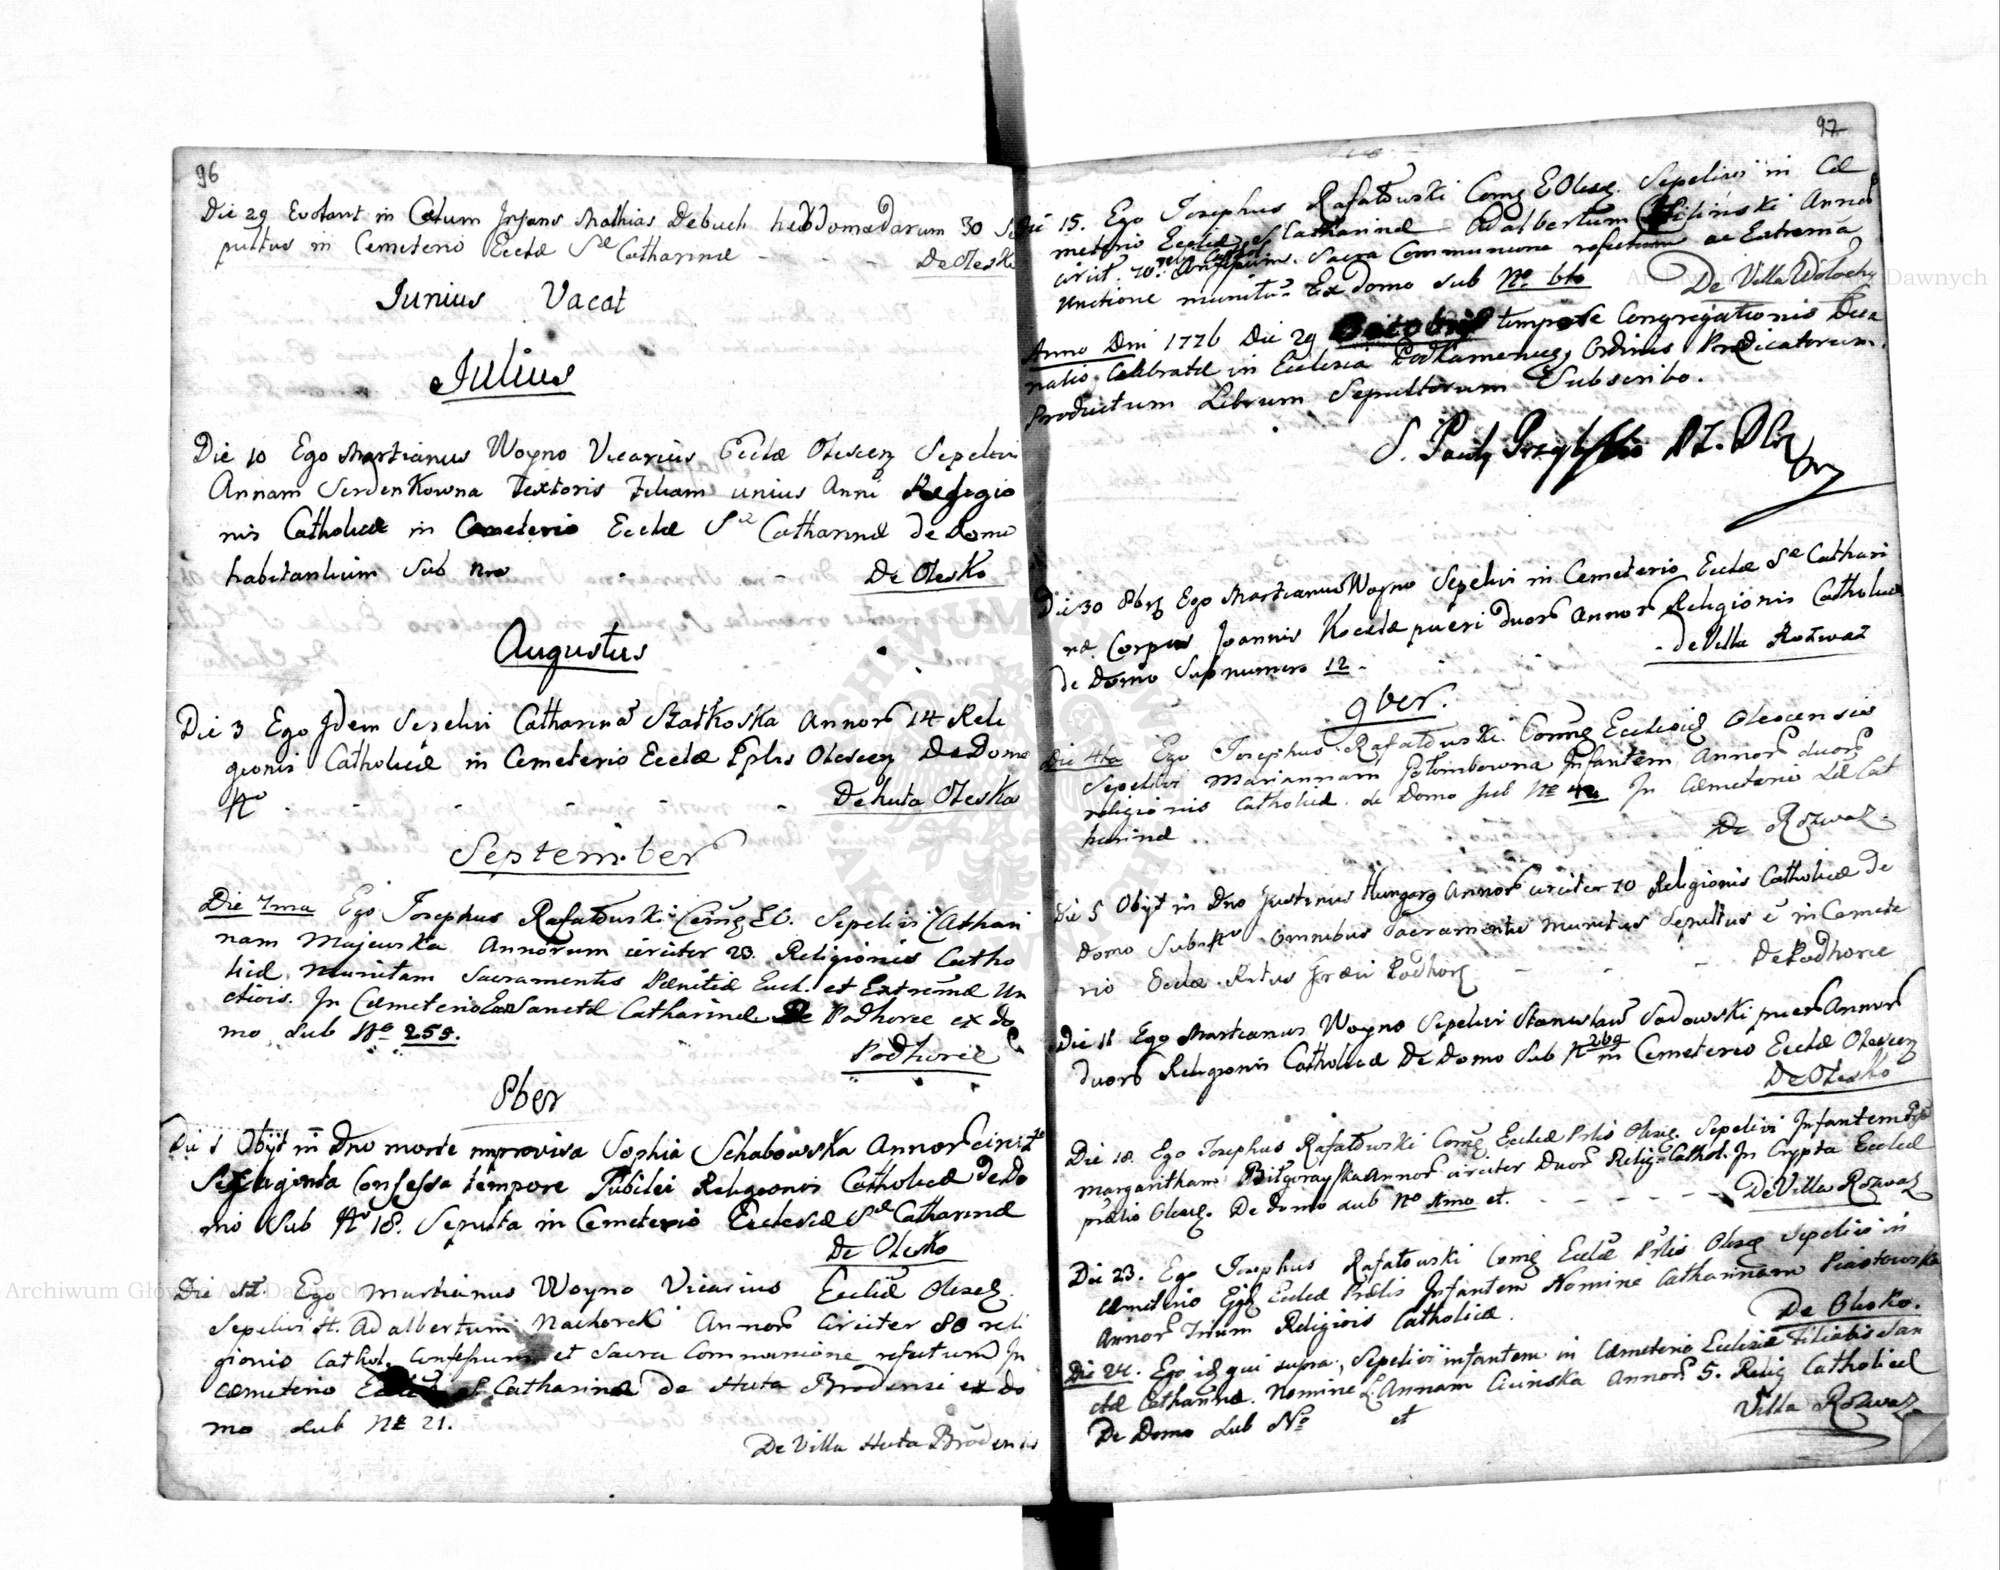 96
Die 29 Evolavit in Cælum Infans Mathias Debuch hebdomadarum 30 Se
pultus in Cemeterio Eccłæ Sæ Catharinæ
De Olesko
Junius Vacat
Julius
Die 10 Ego Martianus Woyno Vicarius Eccłæ Olescen Sepelivi
Annam Serdenkowna Textoris Filiam unius Anni Religio
nis Catholicæ in Cemeterio Eccłæ Sæ Catharinæ de Domo
habitantium Sub Nro
De Olesko
Augustus
Die 3 Ego Idem Sepelivi Catharinā Statkoska Annor̄ 14 Reli
gionis Catholicæ in Cemeterio Eccłæ Pplis Olescen De Domo
No
De huta Oleska
September
Die 7ma Ego Josephus Rafałowski EC. Sepelivi Cathari
nam Majewska Annorum circiter 23. Religionis Catho
licæ, Munitam Sacramentis Pænitiæ Euch. et Extremæ Un
ctiois. In Cæmeterio Sanctæ Catharinæ De Podhorce ex do
mo sub No 255.
Podhorce
8ber
Die 1 Obijt in Dno morte improvisa Sophia Schabowska Annor̄
Sexaginta Confessa tempore Jubilei Religionis Catholicæ de Do
mo Sub No 18. Sepulta in Cemeterio Ecclesiæ Sæ Catharinæ
De Olesko
Die Ego Martianus Woyno Vicarius Eccliæ Olesc
Sepelivi Adalbertum Nachorek Annor̄ Circiter 80 reli
gionis Cathol. Confessum et Sacra Communione refectum In
cæmeterio S Catharinæ de Huta Brodensi ex do
mo sub No 21.
De Villa Huta Brodensis
97
Die 15. Ego Josephus Rafałowski Olesc. Sepelivi in Cæ
meterio Eccliæ S Catharinæ Adalbertum Annor̄
circit. 70 Confessum. Sacra Communione refectum ac Extrema
Unctione munitū Ex domo sub No 6to
De Villa Wołochy
Anno Dni 1776 Die 29 Octobris tempore Congregationis Deca
nalis Celebratæ in Ecclesia Podkamenen Ordinis Prædicatorum.
Productum Librum Sepultorum Subscribo.
Die 30 8br Ego Martianus Woyno Sepelivi in Cemeterio Eccłæ Sæ Cathari
næ. Corpus Joannis pueri duor̄ Annor̄ Religionis Catholicæ
de Domo Sub numero 12 -
de Villa Rozwaz
9ber.
Die 4ta Ego Josephus Rafałowski Ecclesiæ Olescensis
Sepelivi Mariannam Gołembowna Infantem Annor̄ duor̄
religionis Catholicæ. de Domo sub No In Cæmeterio Cat
harinæ
De Rozwaz.
Die 5 Obijt in Dno Justinus Hungarg Annor̄ circiter 70 Religionis Catholicæ de
Domo Sub No omnibus Sacramentis munitus Sepultus ē in Cemete
rio Eccłæ Ritus Græci Podhor
De Podhorce
Die 11 Ego Martianus Woyno Sepelivi Stanisław Sadowski puer̄ Annor̄
duor̄ Religionis Catholicæ De Domo Sub N 269 in Cemeterio Eccłæ Olescen
De Olesko
Die 18. Ego Josephus Rafałowski Eccłæ Olesc. Sepelivi Infantem
Margaritham Biłgorayska Annor̄ circiter Duor̄ Relig. Cathol. In Crypta Eccliæ
Olesc. De domo sub No et.
De Villa Rozwaz
Die 23. Ego Josephus Rafałowski Eccłæ Olesc Sepelivi in
cæmeterio Eccłæ Infantem Nomine Catharinam Piastowska
Annor̄ Trium Religiois Catholicæ.
De Olesko.
Die 24. Ego qui supra, Sepelivi infantem in Cæmeterio Ecclesiæ Filialis San
ctæ Catharinæ. Nomine Annam Cicinska Annor̄ 5. Relig Catholicæ
De Domo sub No et
Villa Rozwaz
Archiwum Główne Akt Dawnych